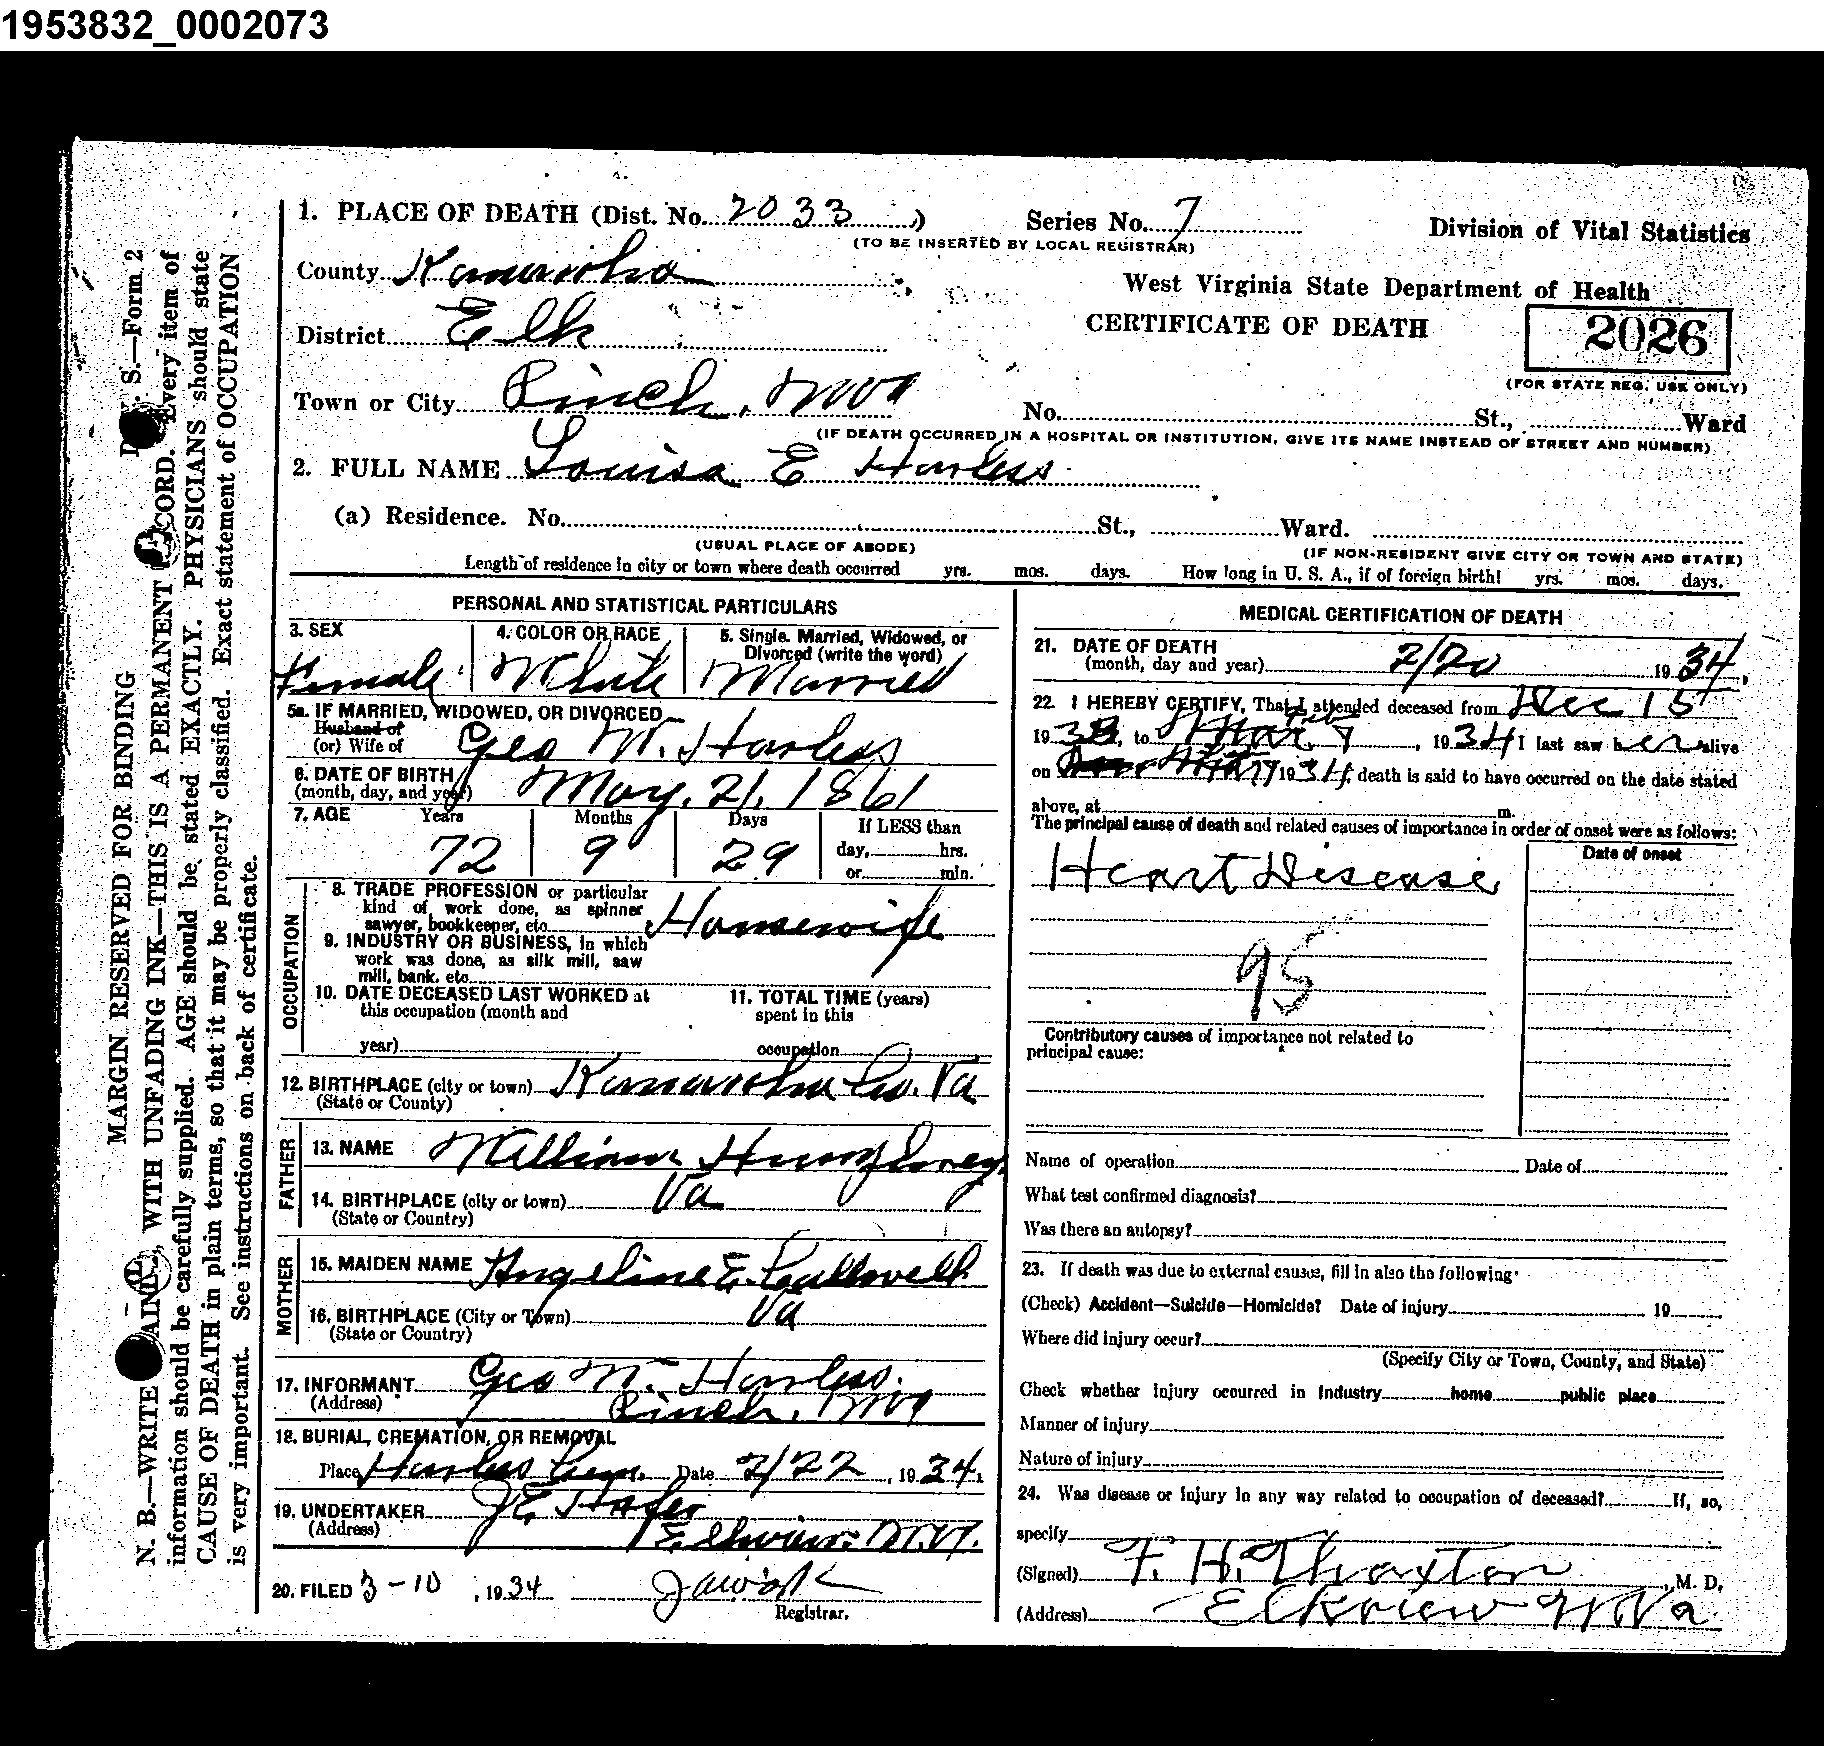 1953832_0002073
1. PLACE OF DEATH (Dist. No. 2033) Series No. 7 Division of Vital Statistics
(TO BE INSERTED BY LOCAL REGISTRAR)
County Kanawha West Virginia State Department of Health
District Elk CERTIFICATE OF DEATH 2026
(FOR STATE REG. USE ONLY)
Town or City Pinch, W Va No. St., Ward
(IF DEATH OCCURRED IN A HOSPITAL OR INSTITUTION, GIVE ITS NAME INSTEAD OF STREET AND NUMBER)
2. FULL NAME Louisa E Harless
(a) Residence. No. St., Ward.
(USUAL PLACE OF ABODE) (IF NON-RESIDENT GIVE CITY OR TOWN AND STATE)
Length of residence in city or town where death occurred yrs. mos. days. How long in U. S. A., if of foreign birth? yrs. mos. days.
PERSONAL AND STATISTICAL PARTICULARS
3. SEX 4. COLOR OR RACE 5. Single. Married, Widowed, or
Divorced (write the word)
Female White Married
5a. IF MARRIED, WIDOWED, OR DIVORCED
Husband of
(or) Wife of Geo W. Harless
6. DATE OF BIRTH
(month, day, and year) May. 21. 1861
7. AGE Years Months Days If LESS than
72 9 29 day, hrs.
or min.
OCCUPATION
8. TRADE PROFESSION or particular
kind of work done, as spinner
sawyer, bookkeeper, etc. Housewife
9. INDUSTRY OR BUSINESS, in which
work was done, as silk mill, saw
mill, bank, etc.
10. DATE DECEASED LAST WORKED at 11. TOTAL TIME (years)
this occupation (month and spent in this
year) occupation
12. BIRTHPLACE (city or town) Kanawha Co. Va
(State or County)
FATHER
13. NAME William Humphrey
14. BIRTHPLACE (city or town) Va
(State or Country)
MOTHER
15. MAIDEN NAME Angeline E.
16. BIRTHPLACE (City or Town) Va
(State or Country)
17. INFORMANT Geo W. Harless.
(Address) Pinch, W Va
18. BURIAL, CREMATION, OR REMOVAL
Place Harless Cem. Date 2/22, 1934.
19. UNDERTAKER J E Hafer
(Address) Elkview W.V.
20. FILED 3-10, 1934
Registrar.
MEDICAL CERTIFICATION OF DEATH
21. DATE OF DEATH
(month, day and year) 2/20 1934.
22. I HEREBY CERTIFY, That I attended deceased from Dec 15
1933, to , 1934 I last saw her alive
on 1934, death is said to have occurred on the date stated
above, at m.
The principal cause of death and related causes of importance in order of onset were as follows:
Date of onset
Heart Disease
95
Contributory causes of importance not related to
principal cause:
Name of operation Date of
What test confirmed diagnosis?
Was there an autopsy?
23. If death was due to external causes, fill in also the following:
(Check) Accident—Suicide—Homicide? Date of injury 19
Where did injury occur?
(Specify City or Town, County, and State)
Check whether injury occurred in industry home public place
Manner of injury
Nature of injury
24. Was disease or injury in any way related to occupation of deceased? If, so,
specify
(Signed) F. H. Thaxton, M. D.
(Address) Elkview W Va
MARGIN RESERVED FOR BINDING
S.—Form 2
N. B.—WRITE WITH UNFADING INK—THIS IS A PERMANENT RECORD. Every item of
information should be carefully supplied. AGE should be stated EXACTLY. PHYSICIANS should state
CAUSE OF DEATH in plain terms, so that it may be properly classified. Exact statement of OCCUPATION
is very important. See instructions on back of certificate.